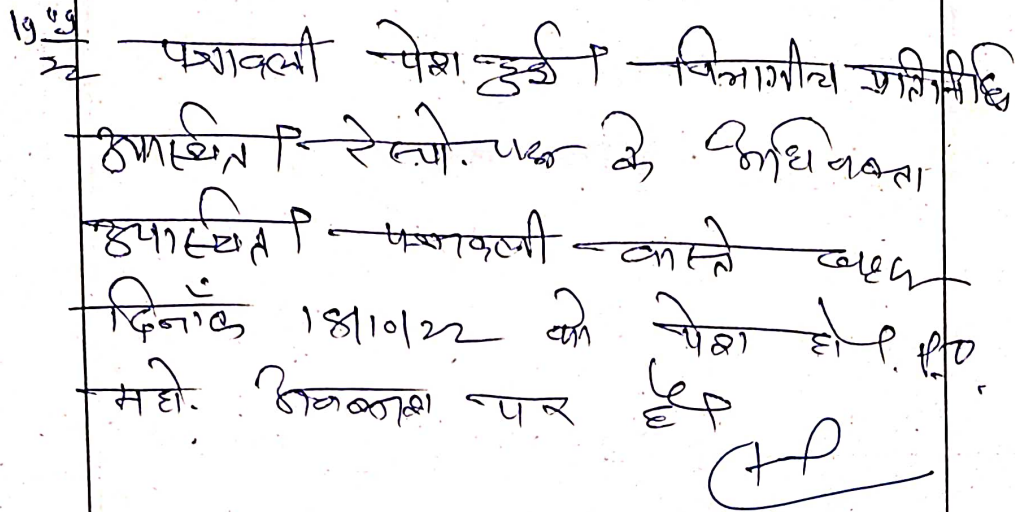 19/09/22 पत्रावली पेश हुई। विभागीय प्रतिनिधि
उपस्थित। रेस्पो. पक्ष के अधिवक्ता
उपस्थित। पत्रावली वास्ते बहस
दिनाँक 18/10/22 को पेश हो। P.O.
महो. अवकाश पर है।